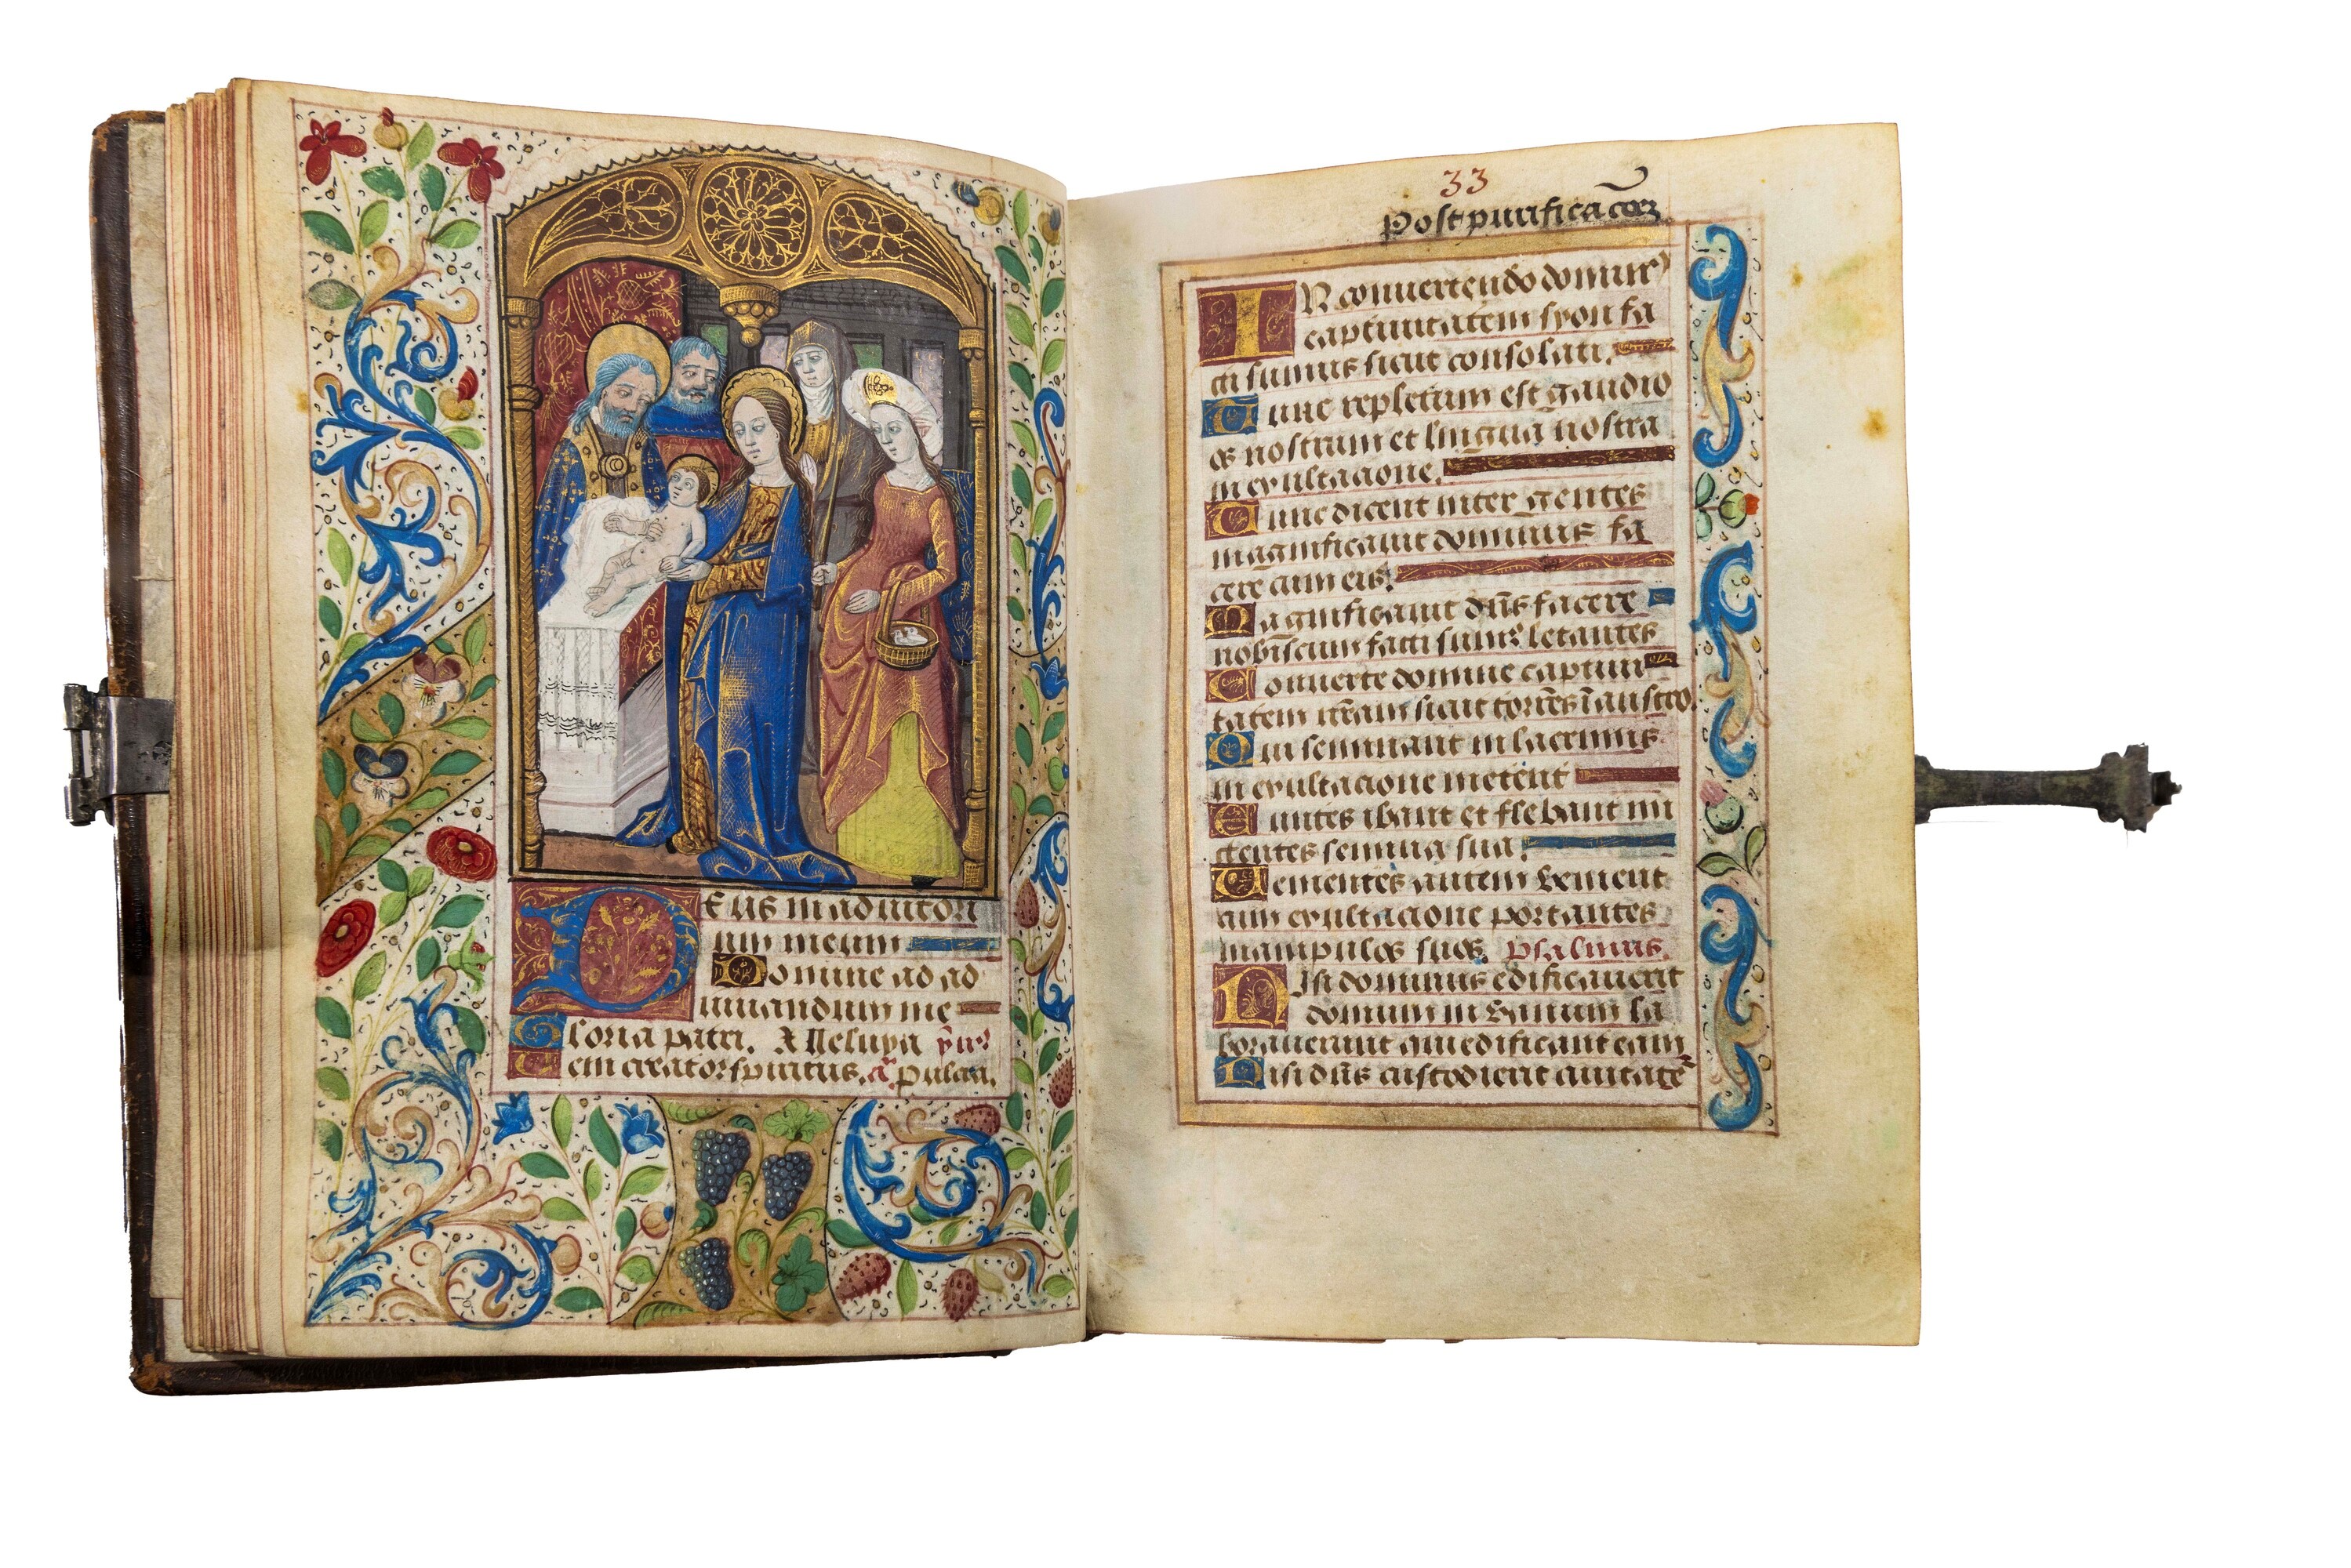 Deus in adiutori
um meum
Domine ad ad
iuuandum me
Gloria patri. Alleluya
Veni creator spiritus. pulcra.
33
Post purificacōez
IN conuertendo dominꝰ
captiuitatem syon fa
cti sumus sicut consolati.
Tunc repletum est gaudio
os nostrum et lingua nostra
in exultacione.
Tunc dicent inter gentes
magnificauit dominus fa
cere cum eis.
Magnificauit dn̄s facere
nobiscum facti sumꝰ letantes
Conuerte domine captiui
tatem nr̄am sicut torrēs ī austro.
Qui seminant in lacrimis
in exultacione metent
Euntes ibant et flebant mi
ttentes semina sua.
Uenientes autem venient
cum exultacione portantes
manipulos suos. psalmus.
Nisi dominus edificauerit
domum in vanum la
borauerunt qui edificant eam
Nisi dn̄s custodierit ciuitatē